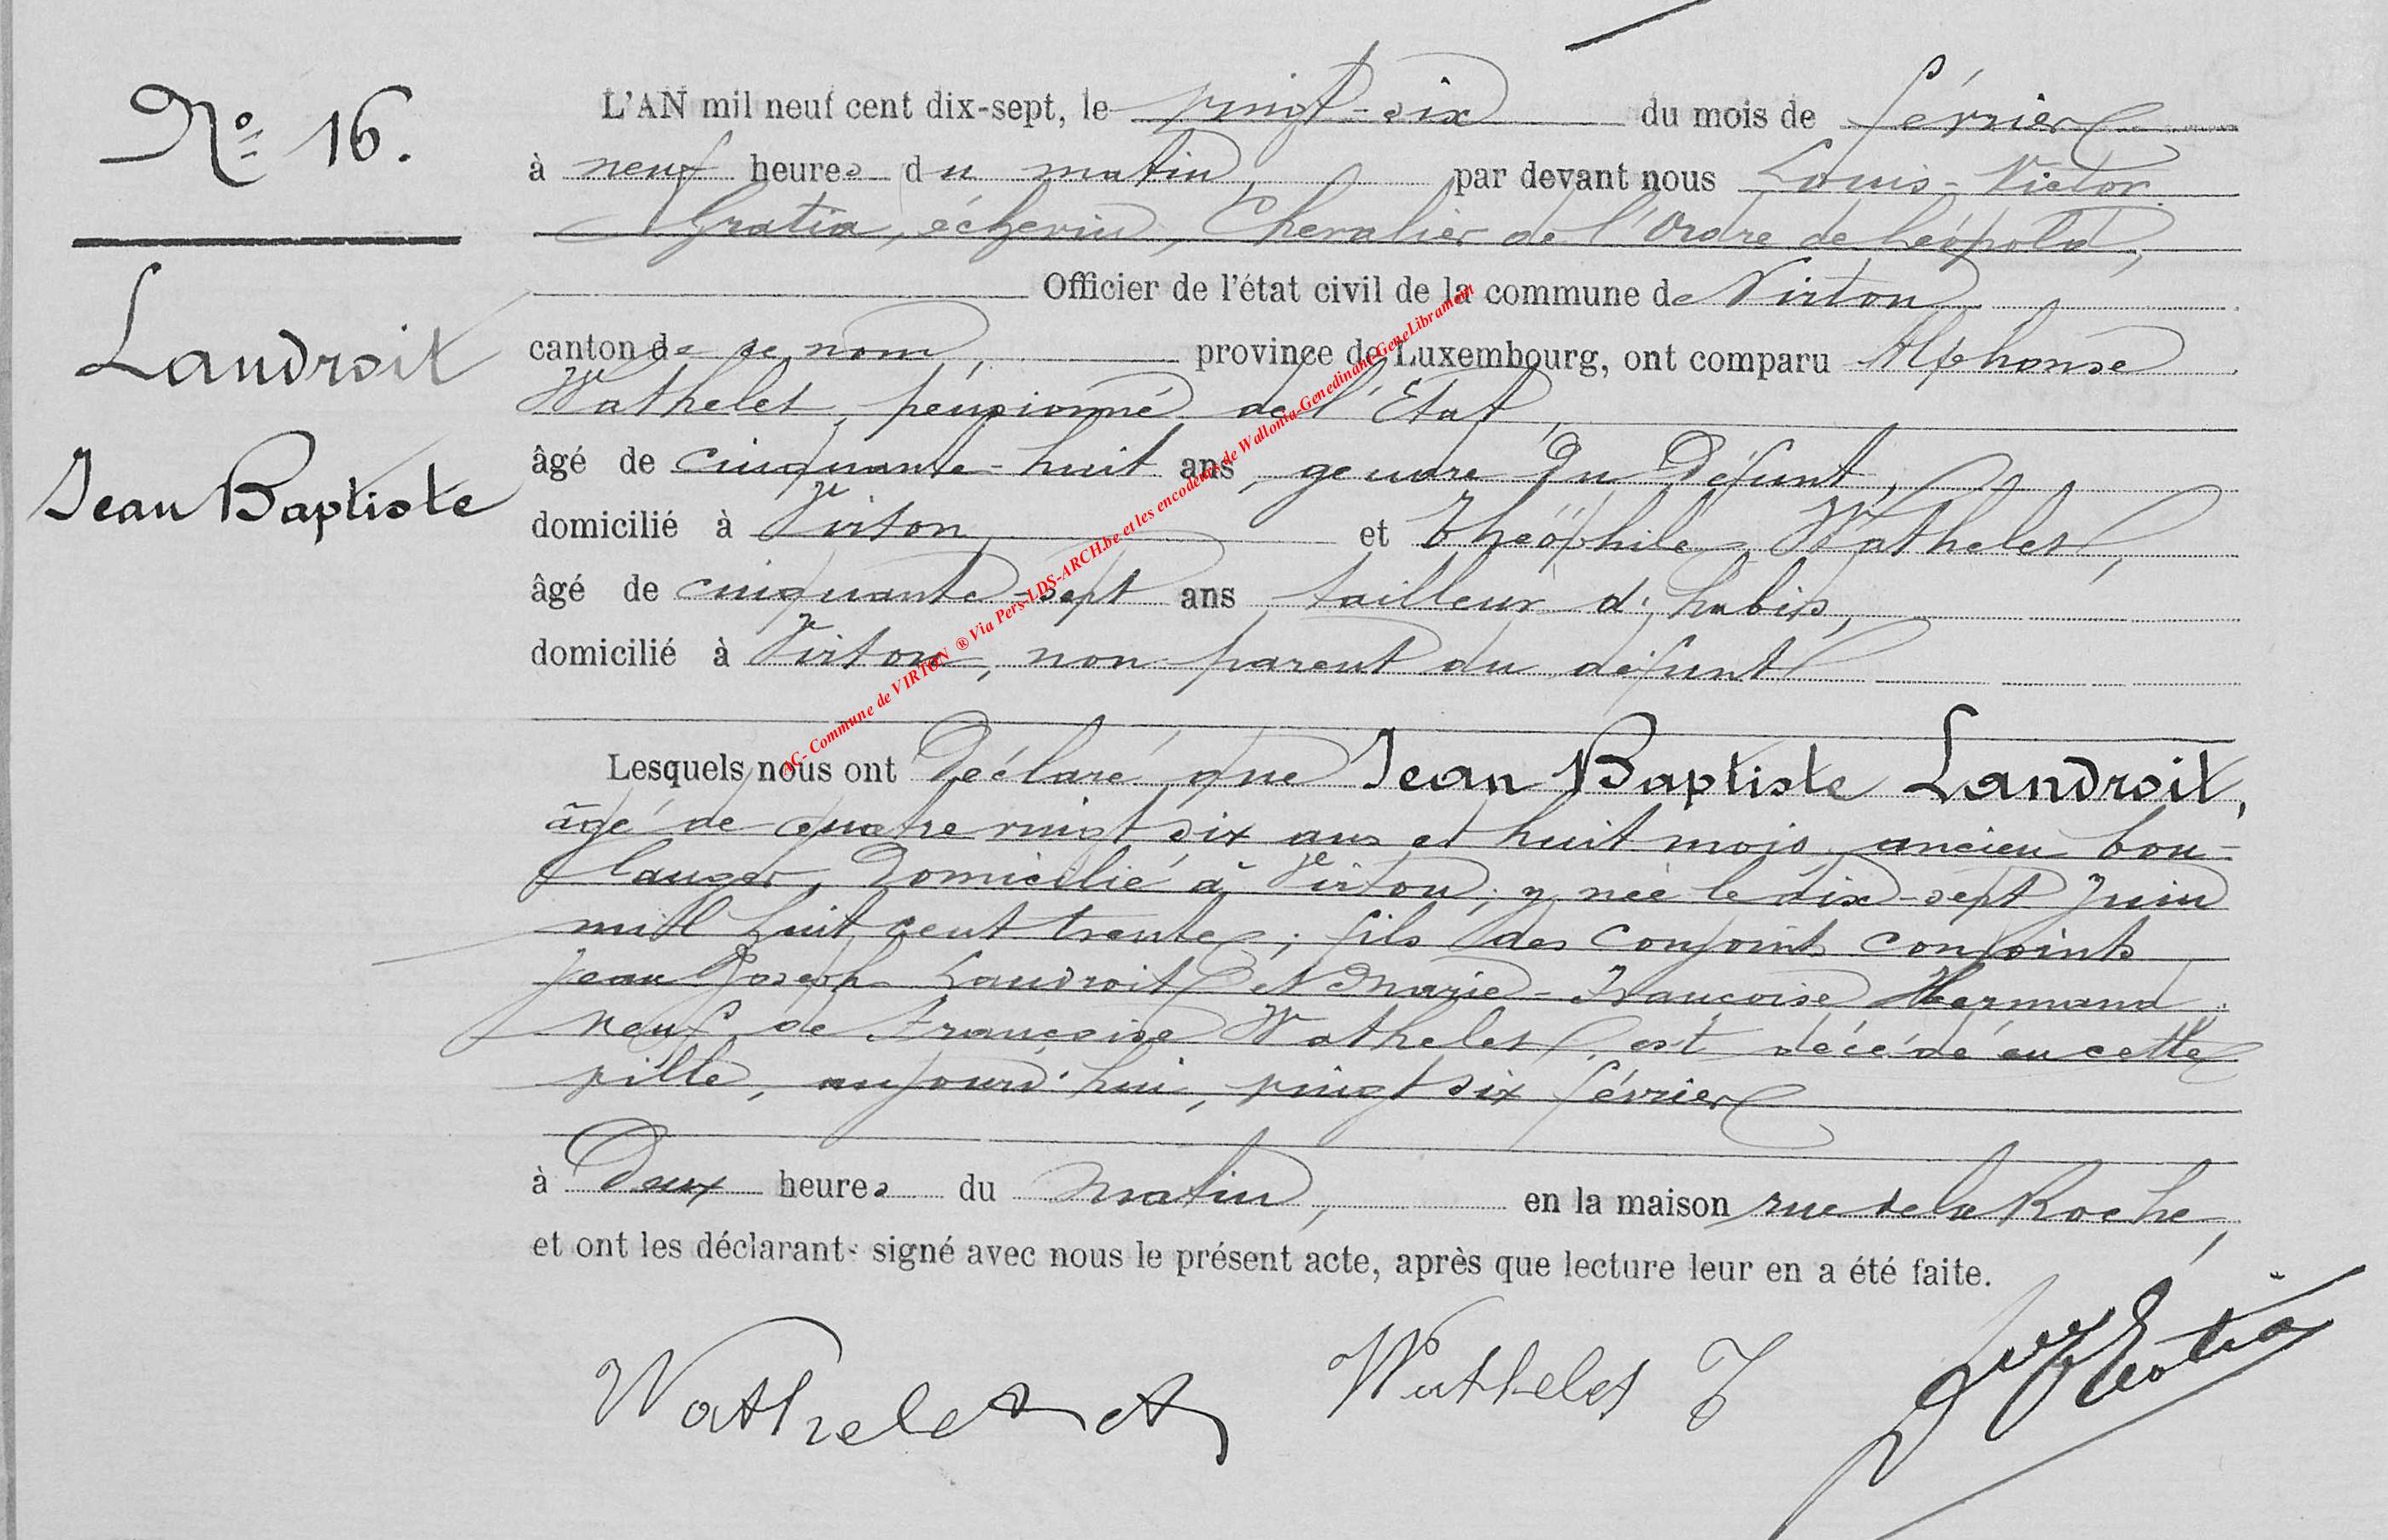 N° 16.
Landroit
Jean Baptiste
L'AN mil neuf cent dix-sept, le vingt-six du mois de février
à neuf heures du matin, par devant nous Louis-Victor
Gratia, échevin, Chevalier de l'Ordre de Léopold,
Officier de l'état civil de la commune de Virton
canton de ce nom, province de Luxembourg, ont comparu Alphonse
Wathelet, pensionné de l'Etat,
âgé de cinquante-huit ans, gendre du défunt,
domicilié à Virton, et Théophile Wathelet,
âgé de cinquante-sept ans tailleur d'habits,
domicilié à Virton, non parent du défunt
Lesquels nous ont déclaré que Jean Baptiste Landroit,
âgé de quatre vingt six ans et huit mois, ancien bou-
langer, domicilié à Virton, y née le dix-sept Juin
mil huit cent trente; fils des conjoints conjoints
Jean Joseph Landroit et Marie-Françoise Hermand,
veuf de Françoise Wathelet, est décédé en cette
ville, aujourd'hui, vingt six février
à Deux heures du matin, en la maison rue de la Roche,
et ont les déclarants signé avec nous le présent acte, après que lecture leur en a été faite.
Wathelet A
Wathelet T
LV Gratia
AC- Commune de VIRTON ® Via Pers-LDS-ARCH.be et les encodeurs de Wallonia-Genedinant-GeneLibramont